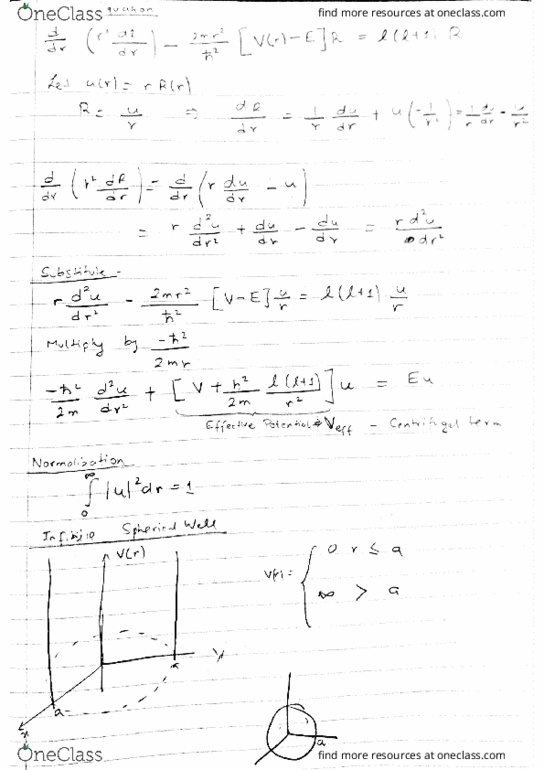 OneClass find more resources at oneclass.com
uation
d/dr (r² dR/dr) − 2mr²/ħ² [V(r)−E]R = l(l+1) R
Let u(r) = r R(r)
R = u/r ⇒ dR/dr = 1/r du/dr + u(−1/r²) = 1/r du/dr − u/r²
d/dr (r² dR/dr) = d/dr (r du/dr − u)
= r d²u/dr² + du/dr − du/dr = r d²u/dr²
Substitute -
r d²u/dr² − 2mr²/ħ² [V−E] u/r = l(l+1) u/r
Multiply by −ħ²/2mr
−ħ²/2m d²u/dr² + [V + ħ²/2m l(l+1)/r²]u = Eu
Effective Potential Veff − Centrifugal term
Normalization
∫₀^∞ |u|² dr = 1
Spherical Well
V(r)
V(r) = { 0 r ≤ a
∞ > a
y
a
a
x
a
OneClass find more resources at oneclass.com